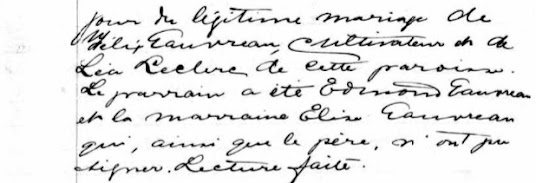 jour du légitime mariage de
Félix Gauvreau, cultivateur et de
Léa Leclerc de cette paroisse.
Le parrain a été Edmond Gauvreau
et la marraine Elise Gauvreau
qui, ainsi que le père, n'ont pu
signer. Lecture faite.